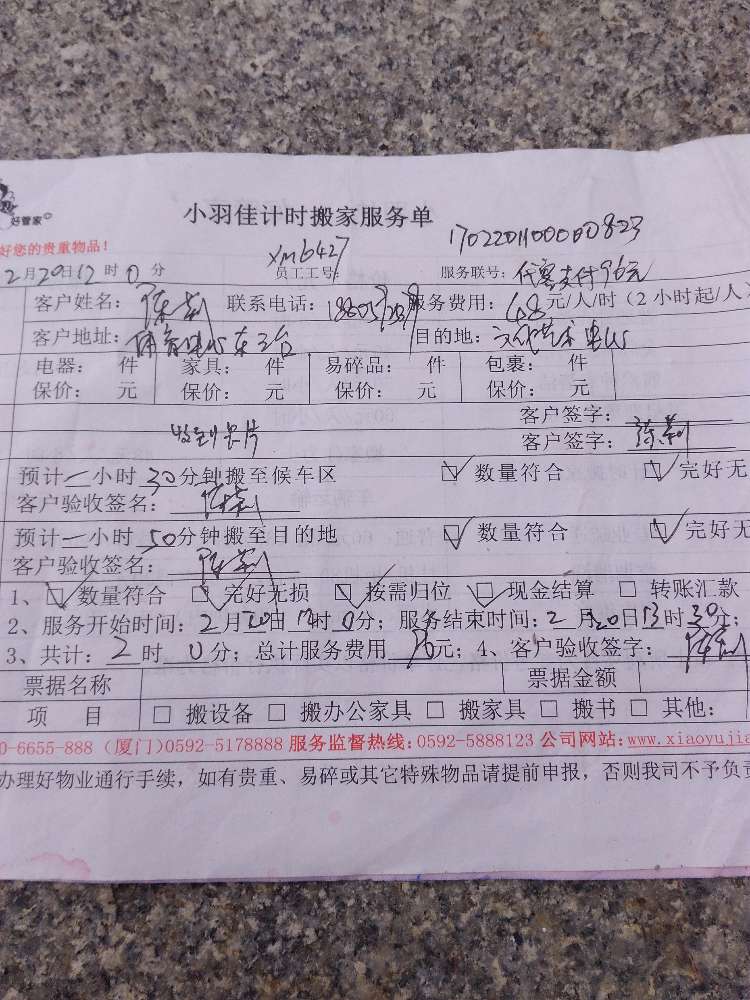 好管家
小羽佳计时搬家服务单
好您的贵重物品！
xm6427 170220110000823
2月20日12时0分 员工工号： 服务联号：代客支付96元
客户姓名： 联系电话： 服务费用：48元/人/时（2小时起/人）
客户地址： 东三台 目的地：
电器： 件 家具： 件 易碎品： 件 包裹： 件
保价： 元 保价： 元 保价： 元 保价： 元
客户签字：
收到卡片 客户签字：
预计一小时30分钟搬至候车区 ☑数量符合 ☑完好无
客户验收签名：
预计一小时50分钟搬至目的地 ☑数量符合 ☑完好无
客户验收签名：
1、☑数量符合 ☑完好无损 ☑按需归位 ☑现金结算 □转账汇款
2、服务开始时间：2月20日 时0分；服务结束时间：2月20日13时30分；
3、共计：2时0分；总计服务费用 元；4、客户验收签字：
票据名称 票据金额
项 目 □搬设备 □搬办公家具 □搬家具 □搬书 □其他：
0-6655-888（厦门）0592-5178888 服务监督热线：0592-5888123 公司网站：www.xiaoyujia
办理好物业通行手续，如有贵重、易碎或其它特殊物品请提前申报，否则我司不予负责